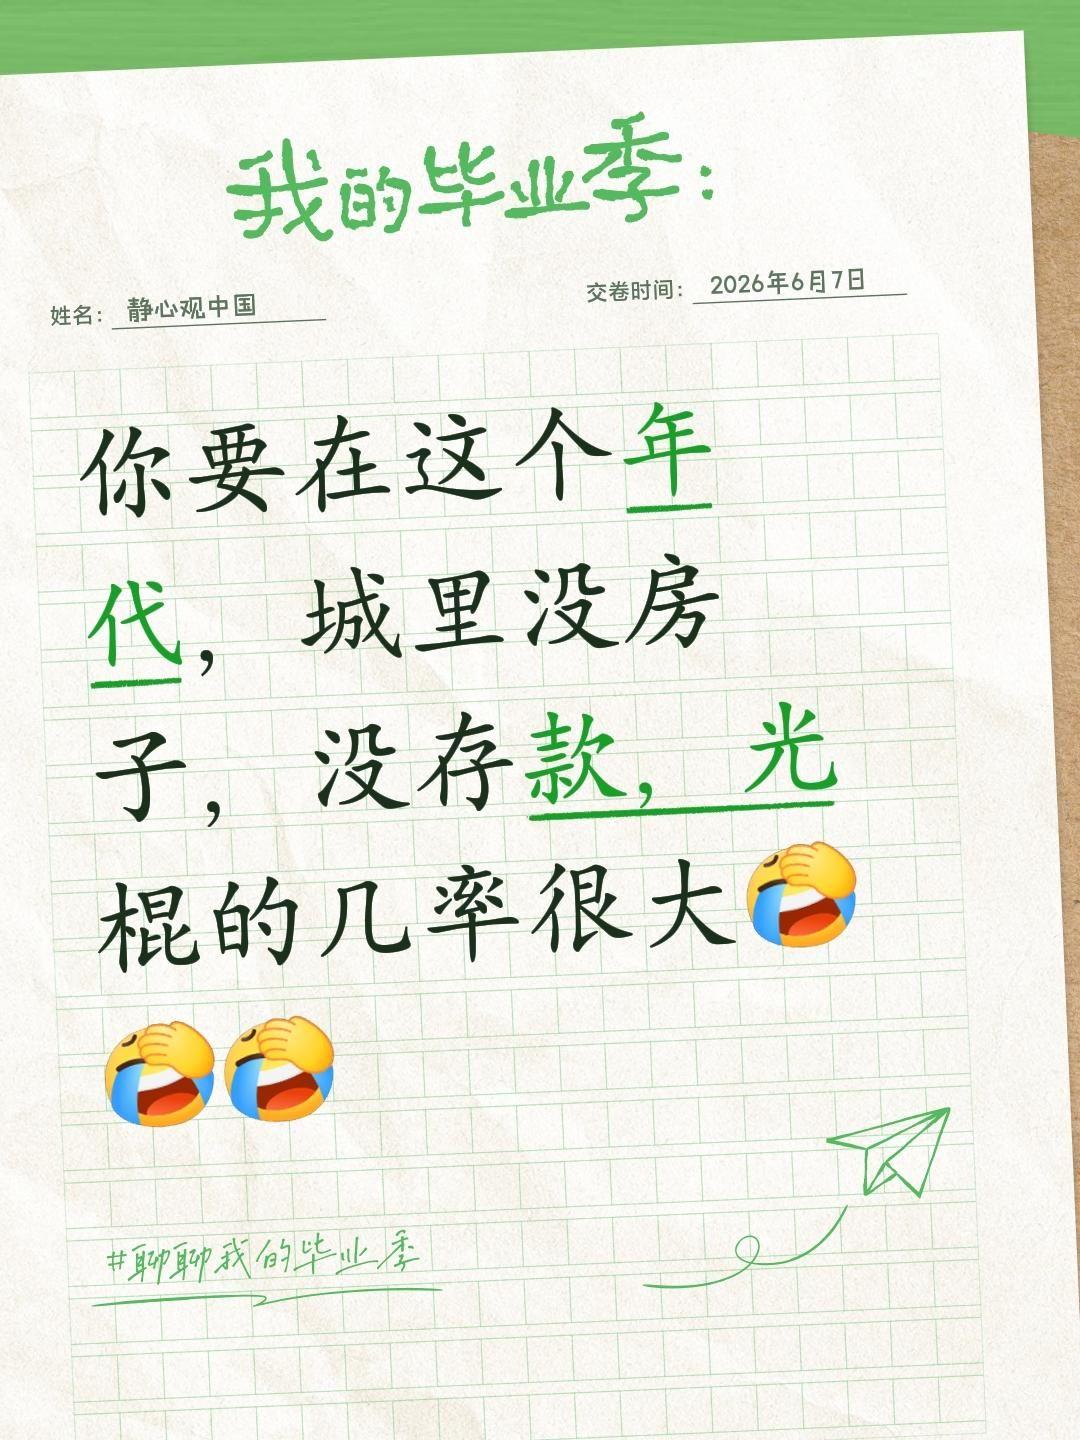 我的毕业季：
姓名：静心观中国
交卷时间：2026年6月7日
你要在这个年
代，城里没房
子，没存款，光
棍的几率很大🤣
🤣🤣
#聊聊我的毕业季